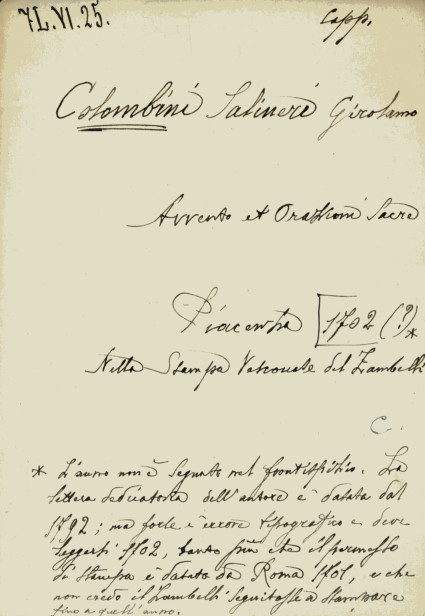 7L.VI.25.
Capp.
Colombini Salineri Girolamo
Avvento et Orazioni Sacre
Piacenza [1702 (?)*
Nella Stampa Vescovale del Zambelli
C.
* L'anno non è segnato nel frontispizio. La
lettera dedicatoria dell'autore è datata dal
1792; ma forse è errore tipografico e deve
leggersi 1702, tanto più che il permesso
di stampa è datato da Roma 1701, e che
non credo il Zambelli seguitasse a stampare
fino a quell'anno.